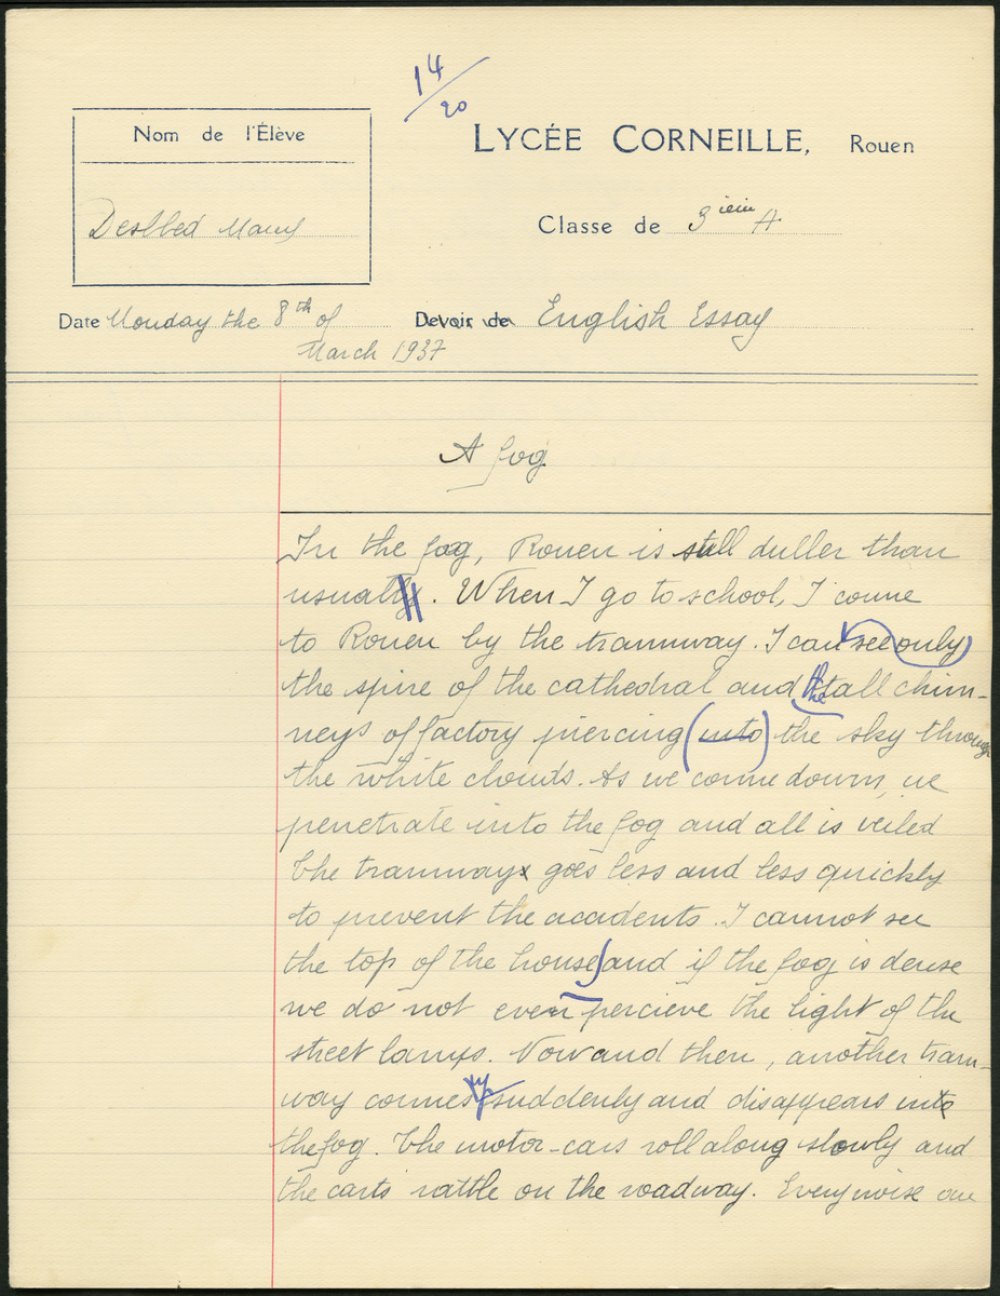 14/20
Nom de l'Élève
LYCÉE CORNEILLE, Rouen
Classe de 3ième A
Date Monday the 8th of
March 1937
Devoir de English Essay
A fog
In the fog, Rouen is still duller than
usually. When I go to school, I come
to Rouen by the tramway. I can see only
the spire of the cathedral and the tall chim-
neys of factory piercing (into) the sky through
the white clouds. As we come down, we
penetrate into the fog and all is veiled
The tramways goes less and less quickly
to prevent the accidents. I cannot see
the top of the house and if the fog is dense
we do not even percieve the light of the
street lamps. Now and then, another tram-
way comes up suddenly and disappears into
the fog. The motor-cars roll along slowly and
the carts rattle on the roadway. Every noise